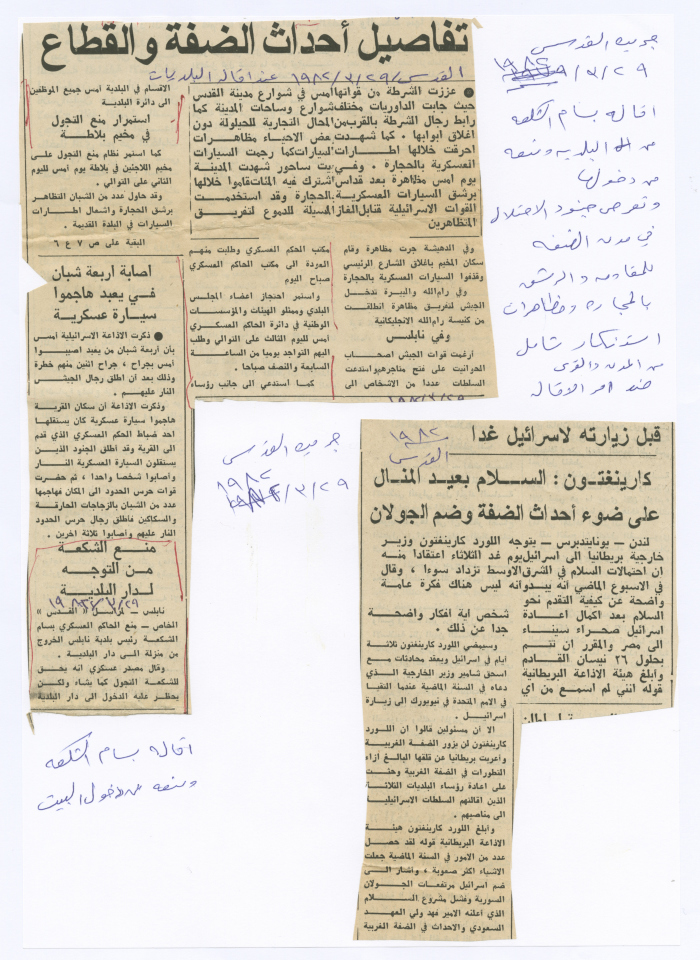 تفاصيل أحداث الضفة والقطاع
القدس / ٢٩/٣/١٩٨٢ عند اقالة البلديات
● عززت الشرطة من قواتها
حيث جابت الدوريات مختلف
رابط رجال الشرطة بالقرب من
اغلاق ابوابها . كما شهدت
احرقت خلالها اطارات
العسكرية بالحجارة . وفي
يوم امس مظاهرة بعد قداس
برشق السيارات العسكرية
القوات الاسرائيلية قنابل الغاز
المتظاهرين
امس في شوارع مدينة القدس
شوارع وساحات المدينة كما
المحال التجارية للحيلولة دون
بعض الاحياء مظاهرات
السيارات كما رجمت السيارات
بيت ساحور شهدت المدينة
شترك فيه المئات قاموا خلالها
بالحجارة وقد استخدمت
المسيلة للدموع لتفريق
وفي الدهيشة جرت مظاهرة وقام
سكان المخيم باغلاق الشارع الرئيسي
وقذفوا السيارات العسكرية بالحجارة
وفي رام الله والبيرة تدخل
الجيش لتفريق مظاهرة انطلقت
من كنيسة رام الله الانجليكانية
وفي نابلس
ارغمت قوات الجيش اصحاب
الحوانيت على فتح متاجرهم واستدعت
السلطات عددا من الاشخاص الى
مكتب الحكم العسكري وطلبت منهم
العودة الى مكتب الحاكم العسكري
صباح اليوم
واستمر احتجاز اعضاء المجلس
البلدي وممثلو الهيئات والمؤسسات
الوطنية في دائرة الحاكم العسكري
امس لليوم الثالث على التوالي وطلب
اليهم التواجد يوميا من الساعة
السابعة والنصف صباحا .
كما استدعي الى جانب رؤساء
الاقسام في البلدية امس جميع الموظفين
الى دائرة البلدية
استمرار منع التجول
في مخيم بلاطة
كما استمر نظام منع التجول على
مخيم اللاجئين في بلاطة يوم امس لليوم
الثاني على التوالي .
وقد حاول عدد من الشبان التظاهر
برشق الحجارة واشعال اطارات
السيارات في البلدة القديمة .
البقية على ص ٧ ع ٦
اصابة اربعة شبان
في يعبد هاجموا
سيارة عسكرية
● ذكرت الاذاعة الاسرائيلية امس
بأن أربعة شبان من يعبد اصيبوا
امس بجراح ، جراح اثنين منهم خطرة
وذلك بعد أن اطلق رجال الجيش
النار عليهم .
وذكرت الاذاعة أن سكان القرية
هاجموا سيارة عسكرية كان يستقلها
احد ضباط الحكم العسكري الذي قدم
الى القرية وقد اطلق الجنود الذين
يستقلون السيارة العسكرية النار
وأصابوا شخصا واحدا ، ثم حضرت
قوات حرس الحدود الى المكان فهاجمها
عدد من الشبان بالزجاجات الحارقة
والسكاكين فأطلق رجال حرس الحدود
النار عليهم وأصابوا ثلاثة اخرين .
منع الشكعة
من التوجه
لدار البلدية
نابلس - مراسل « القدس »
الخاص - منع الحاكم العسكري بسام
الشكعة رئيس بلدية نابلس الخروج
من منزلة الى دار البلدية .
وقال مصدر عسكري انه يحق
للشكعة التجول كما يشاء ولكن
يحظر عليه الدخول الى دار البلدية
جريدة القدس
١٩٨٢
٢٩/٣/
اقالة بسام الشكعه
من البلديه ومنعه
من دخولها
وتعرض جنود الاحتلال
في مدن الضفه
للمقاومه والرشق
بالحجاره ومظاهرات
استنكار شامل
من المدن والقرى
ضد امر الاقاله
جريدة القدس
١٩٨٢
٢٩/٣/
اقاله بسام الشكعه
ومنعه من دخول البيت
١٩٨٢
القدس
قبل زيارته لاسرائيل غدا
كارينغتون : السلام بعيد المنال
على ضوء أحداث الضفة وضم الجولان
لندن - يونايتدبرس - يتوجه اللورد كارينغتون وزير
خارجية بريطانيا الى اسرائيل يوم غد الثلاثاء اعتقادا منه
ان احتمالات السلام في الشرق الاوسط تزداد سوءا ، وقال
في الاسبوع الماضي انه يبدو انه ليس هناك فكرة عامة
واضحة عن كيفية التقدم نحو
السلام بعد اكمال اعادة
اسرائيل صحراء سيناء
الى مصر والمقرر ان تتم
بحلول ٢٦ نيسان القادم
وابلغ هيئة الاذاعة البريطانية
قوله انني لم اسمع من اي
شخص اية افكار واضحة
جدا عن ذلك .
وسيمضي اللورد كارينغتون ثلاثة
أيام في اسرائيل ويعقد محادثات مع
اسحق شامير وزير الخارجية الذي
دعاه في السنة الماضية عندما التقيا
في الامم المتحدة في نيويورك الى زيارة
اسرائيل .
الا أن مسئولين قالوا ان اللورد
كارينغتون لن يزور الضفة الغربية
وأعربت بريطانيا عن قلقها البالغ ازاء
التطورات في الضفة الغربية وحثت
على اعادة رؤساء البلديات الثلاثة
الذين اقالتهم السلطات الاسرائيلية
الى مناصبهم .
وابلغ اللورد كارينغتون هيئة
الاذاعة البريطانية قوله لقد حصل
عدد من الامور في السنة الماضية جعلت
الاشياء اكثر صعوبة ، وأشار الى
ضم اسرائيل مرتفعات الجولان
السورية وفشل مشروع السلام
الذي أعلنه الامير فهد ولي العهد
السعودي والاحداث في الضفة الغربية